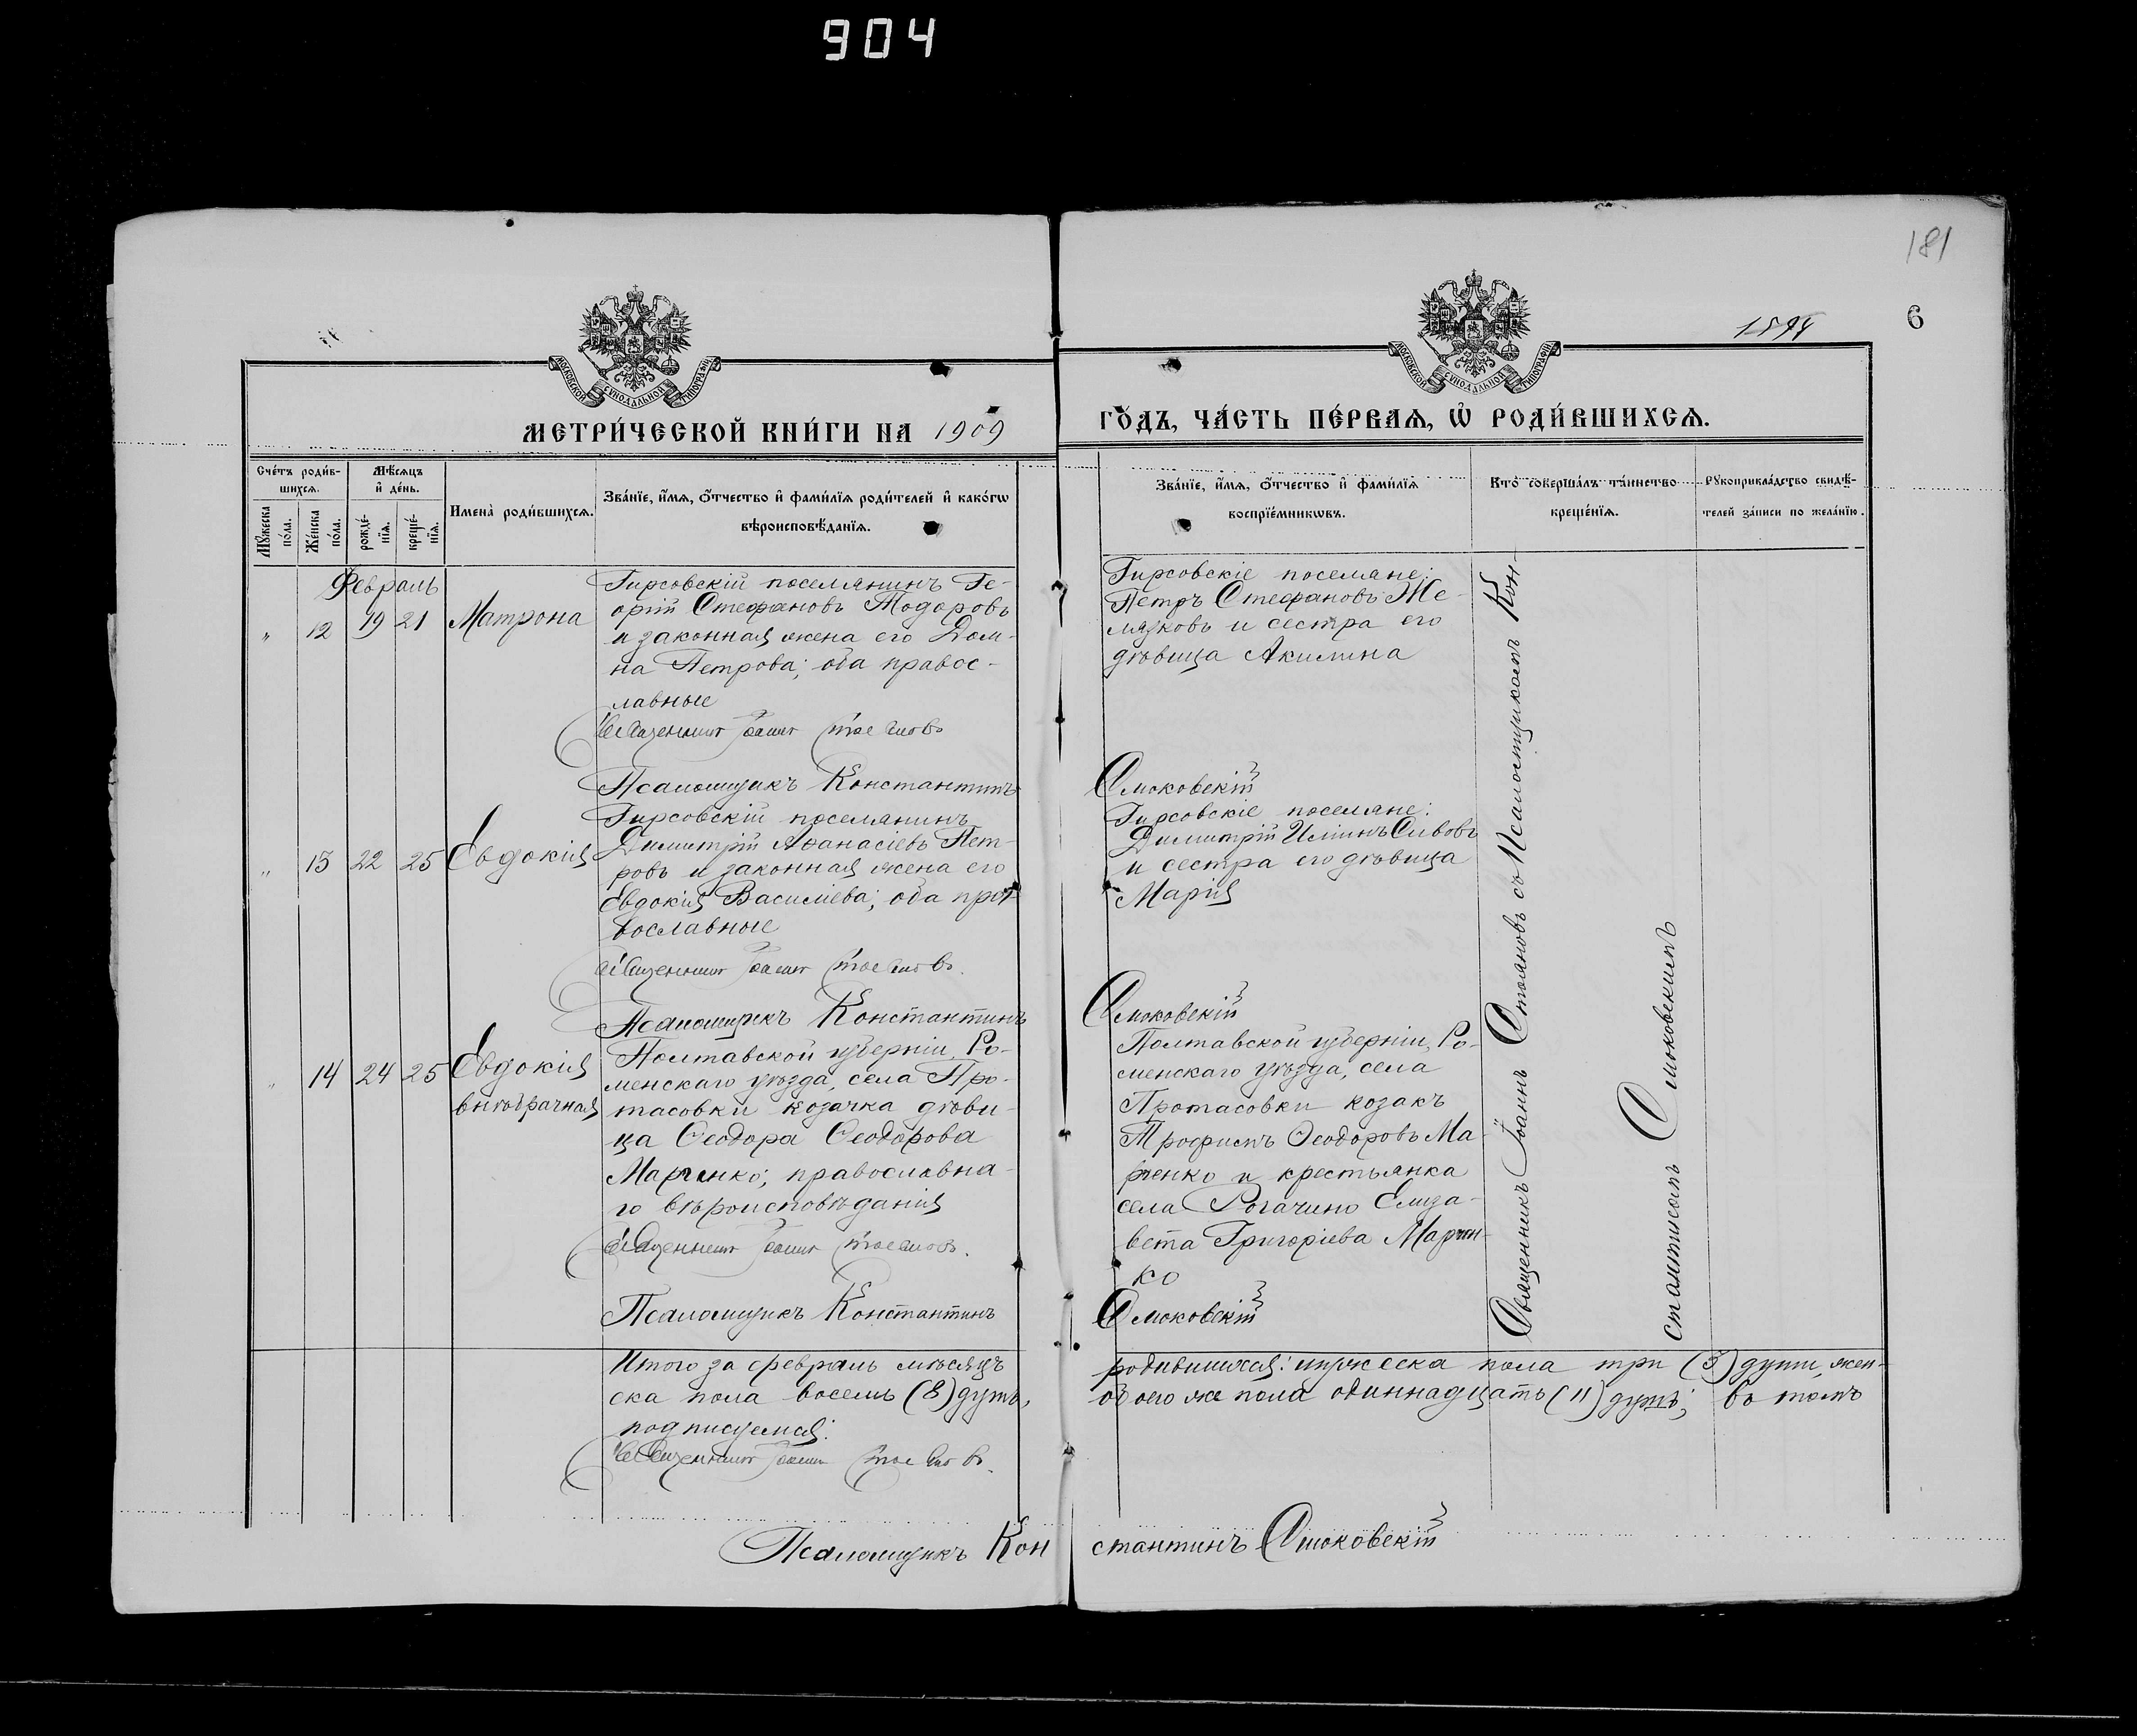 904
181
6
1594
МОСКОВСКОЙ СѴНОДАЛЬНОЙ ТИПОГРАФІИ
МОСКОВСКОЙ СѴНОДАЛЬНОЙ ТИПОГРАФІИ
МЕТРИ́ЧЕСКОЙ КНИ́ГИ НА 1909
ГО́ДЪ, ЧА́СТЬ ПЕ́РВАѦ, Ѡ҆ РОДИ́ВШИХСѦ.
Сче́тъ роди́в-
шихсѧ.
Мѣ́сѧцъ
и҆ де́нь.
Мꙋ́жеска
по́ла.
Же́нска
по́ла.
рожде́-
нїѧ.
креще́-
нїѧ.
Имена̀ роди́вшихсѧ.
Зва́нїе, и҆́мѧ, ѻ҆́тчество и҆ фами́лїѧ роди́телей и҆ како́гѡ
вѣроисповѣ́данїѧ.
Зва́нїе, и҆́мѧ, ѻ҆́тчество и҆ фами́лїѧ
воспрїе́мникѡвъ.
Кто̀ соверша́лъ та́инство
креще́нїѧ.
Рꙋкоприкла́дство свидѣ́-
телей за́писи по жела́нїю.
Февраль
" 12 19 21 Матрона
Гирсовскій поселянинъ Ге-
оргій Стефановъ Тодоровъ
и законная жена его Дом-
на Петрова; оба правос-
лавные
Священникъ Іоаннъ Стояновъ
Псаломщикъ Константинъ
Гирсовскіе поселяне:
Петръ Стефановъ Же-
лязковъ и сестра его
дѣвица Акилина
Смоковскій
" 13 22 25 Евдокія
Гирсовскій поселянинъ
Димитрій Аѳанасіевъ Пет-
ровъ и законная жена его
Евдокія Василіева; оба пра-
вославные
Священникъ Іоаннъ Стояновъ.
Псаломщикъ Константинъ
Гирсовскіе поселяне:
Димитрій Иліинъ Сивовъ
и сестра его дѣвица
Марія
Смоковскій
" 14 24 25 Евдокія
внѣбрачная
Полтавской губерніи, Ро-
менскаго уѣзда, села Про-
тасовки козачка дѣви-
ца Ѳеодора Ѳеодорова
Марченко; православна-
го вѣроисповѣданія
Священникъ Іоаннъ Стояновъ.
Псаломщикъ Константинъ
Полтавской губерніи, Ро-
менскаго уѣзда, села
Протасовки козакъ
Трофимъ Ѳеодоровъ Ма-
рченко и крестьянка
села Рогачино Елиза-
вета Григоріева Марчен-
ко
Смоковскій
Священникъ Іоаннъ Стояновъ съ Псаломщикомъ Кон-
стантиномъ Смоковскимъ
Итого за февраль мѣсяцъ родившихся: мужеска пола три (3) души, жен-
ска пола восемь (8) душъ, обоего же пола одиннадцать (11) душъ; въ томъ
подписуемся:
Священникъ Іоаннъ Стояновъ.
Псаломщикъ Константинъ Смоковскій